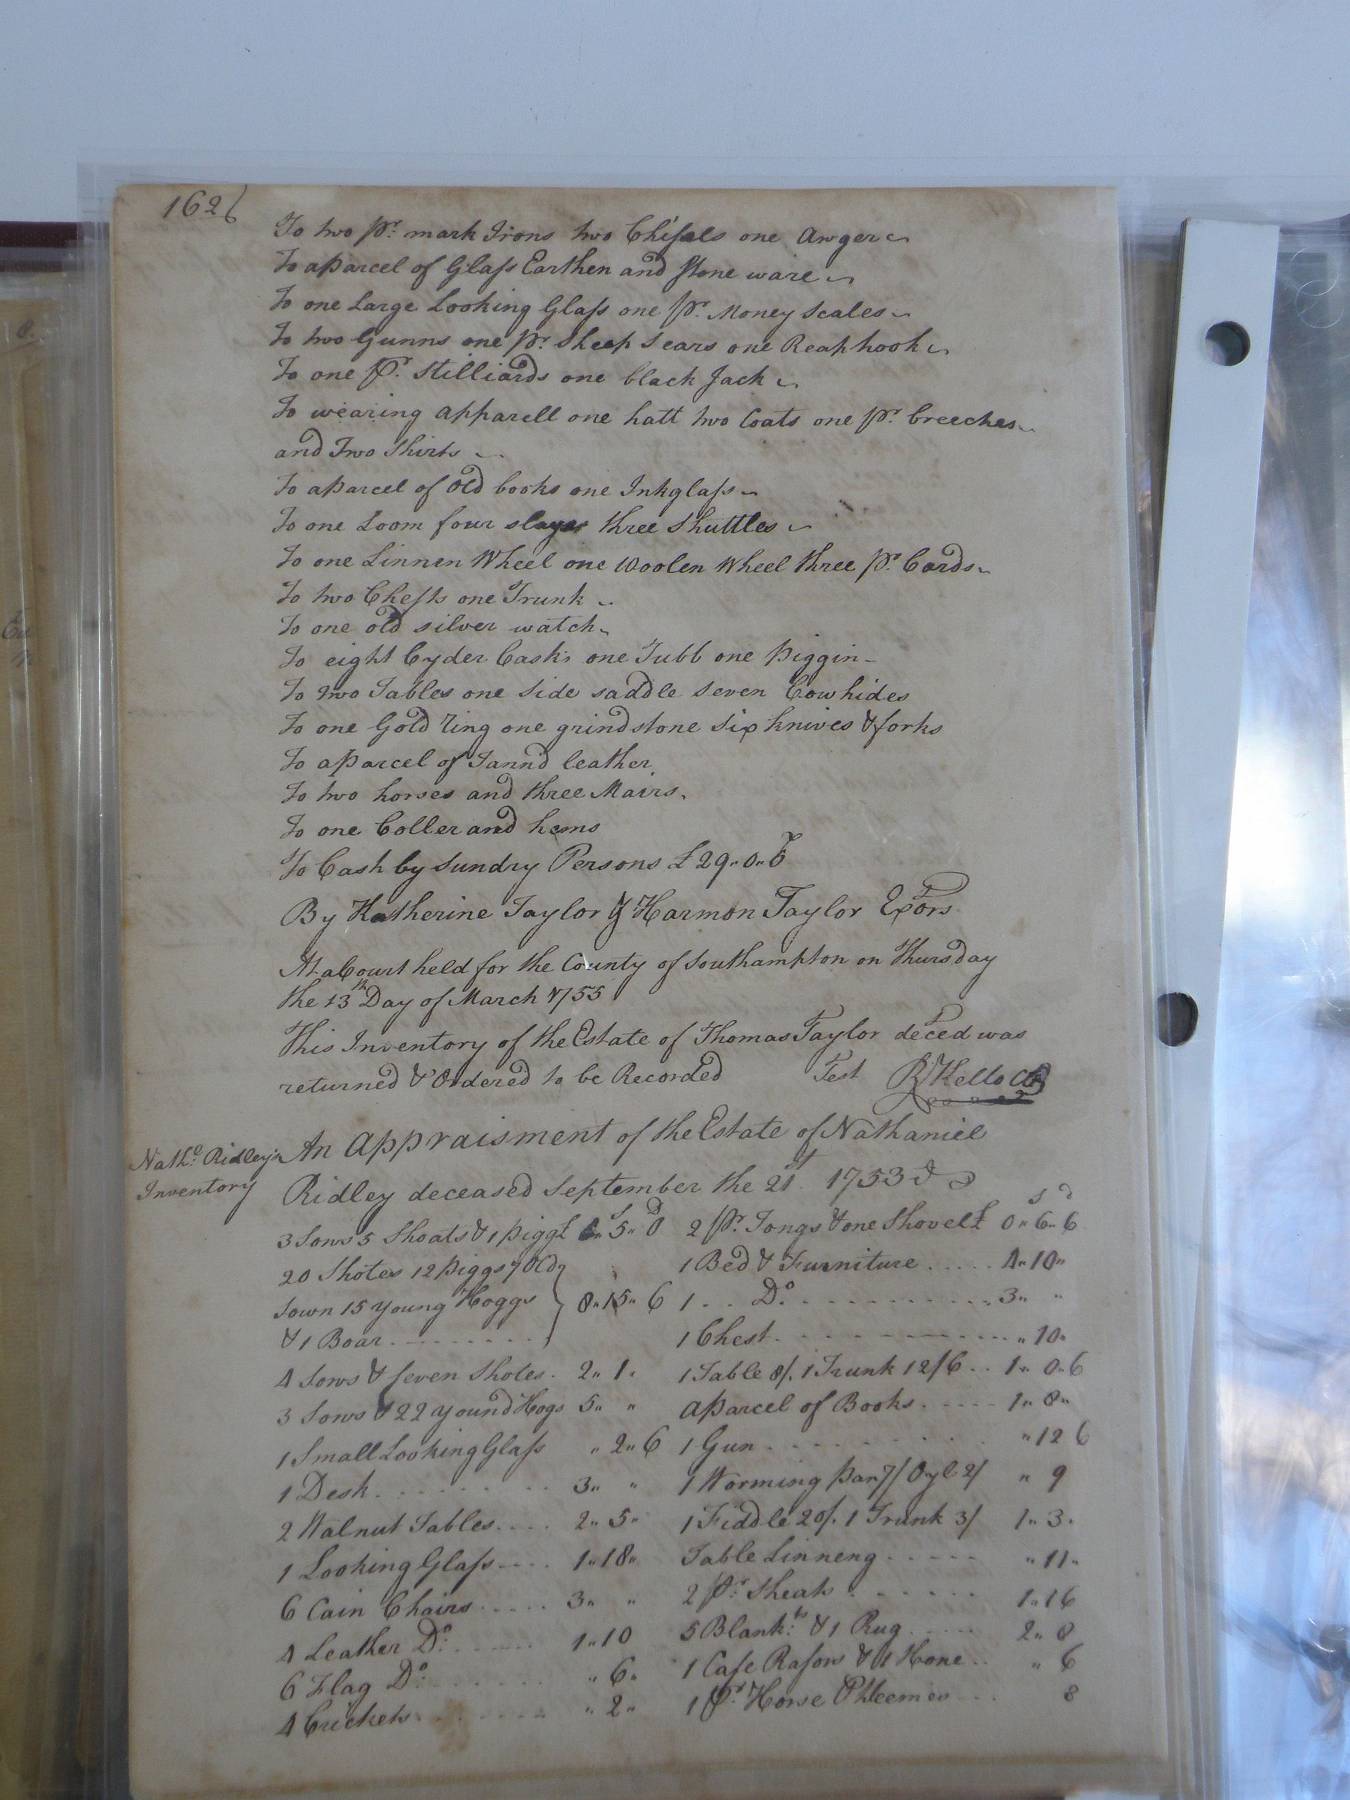 162
To two pr. mark Irons two Chisels one Awger
To a parcel of Glass Earthen and stone ware
To one Large Looking Glass one pr. Money Scales
To two Gunns one pr. Sheep Sears one Reaphook
To one pr. Stilliards one black Jack
To wearing apparell one hatt two Coats one pr. breeches
and Two Shirts
To a parcel of old books one Inkglass
To one Loom four slayes three Shuttles
To one Linnen Wheel one Woolen Wheel three pr. Cards
To two Chests one Trunk
To one old silver watch
To eight Cyder Casks one Tubb one piggin
To two Tables one Side saddle seven Cowhides
To one Gold ring one grindstone six knives & forks
To a parcel of Tann'd leather
To two horses and three Mairs.
To one Coller and hems
To Cash by Sundry Persons £29..0..6
By Katherine Taylor & Harmon Taylor Exors
At a Court held for the County of Southampton on Thursday
the 13th Day of March 1755
This Inventory of the Estate of Thomas Taylor deced was
returned & Ordered to be Recorded Test R Kello
Nathl. Ridley's
Inventory
An Appraisment of the Estate of Nathaniel
Ridley deceased September the 21st 1753
3 Sows 5 Shoats & 1 pigg £ 5 2 pr. Tongs & one Shovel £ 0..6..6
20 Shotes 12 piggs 7 Old 1 Bed & Furniture 4..10
Sown 15 young Hoggs 8..15..6 1 Do. 3
& 1 Boar 1 Chest 10
4 Sows & Seven Shotes. 2..1. 1 Table 8/. 1 Trunk 12/6 1..0..6
3 Sows & 22 Yound Hogs 5 a parcel of Books 1..8
1 Small Looking Glass 2..6 1 Gun 12 6
1 Desk 3 1 Worming pan 7/ Oyl 2/ 9
2 Walnut Tables 2..5 1 Fiddle 20/. 1 Trunk 3/ 1..3.
1 Looking Glass 1..18 Table Linneng 11
6 Cain Chairs 3 2 pr. Sheats 1..16
4 Leather Do. 1..10 5 Blankts. & 1 Rug 2..8
6 Flag Do. 6 1 Case Rasors & 1 Hone 6
4 Crickets 2 1 pr. Horse Phleemes 8